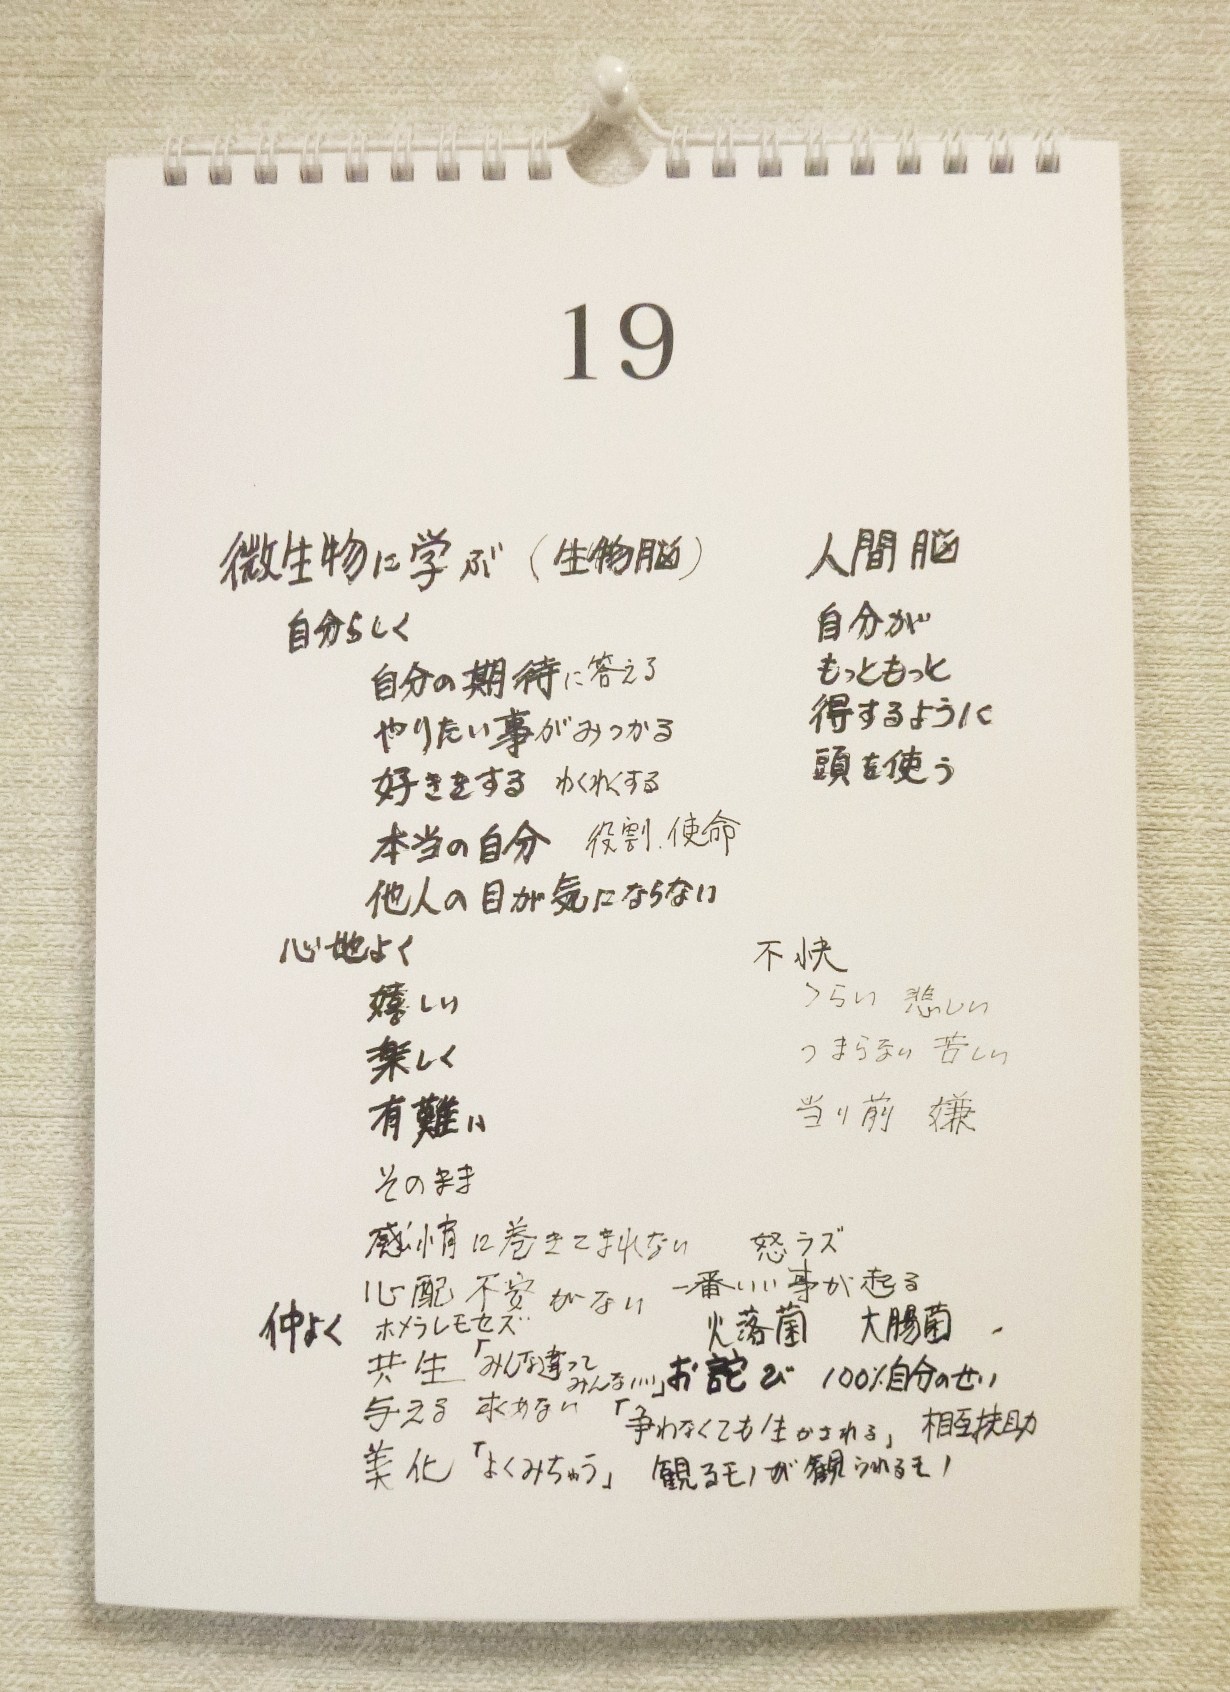 19
微生物に学ぶ（生物脳） 人間脳
自分らしく 自分が
自分の期待に答える もっともっと
やりたい事がみつかる 得するように
好きをする わくわくする 頭を使う
本当の自分 役割.使命
他人の目が気にならない
心地よく 不快
嬉しい つらい 悲しい
楽しく つまらない 苦しい
有難い 当り前 嫌
そのまま
感情に巻きこまれない 怒ラズ
心配 不安がない 一番いい事が起る
仲よく ホメラレモセズ 火落菌 大腸菌
共生「みんな違って
みんないい」お詫び 100%自分のせい
与える 求めない「争わなくても生かされる」相互扶助
美化「よくみちゅう」 観るモノが観られるモノ